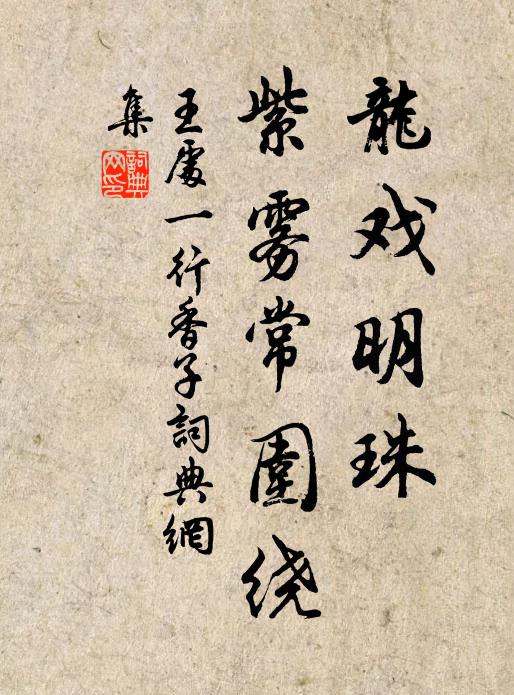 龍戏明珠
紫雾常圍绕
王處一行香子詞典網
集
詞典
网印